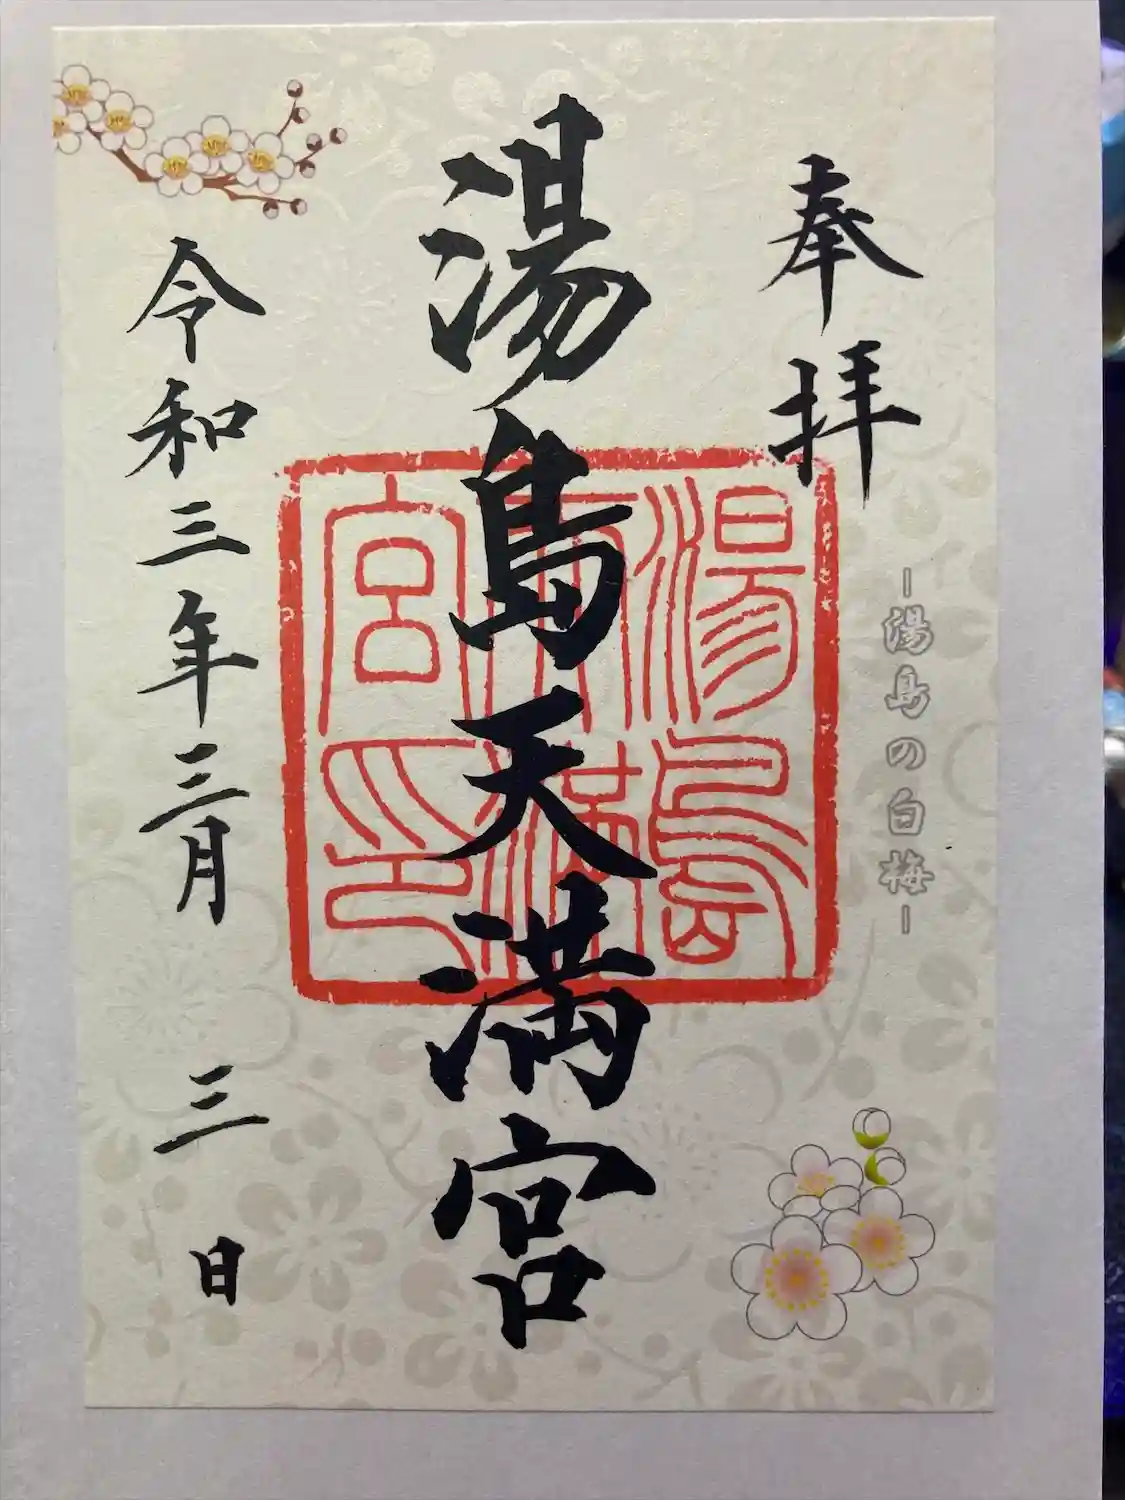 奉拝
-湯島の白梅-
湯島天満宮
湯島
天満
宮印
令和三年三月三日